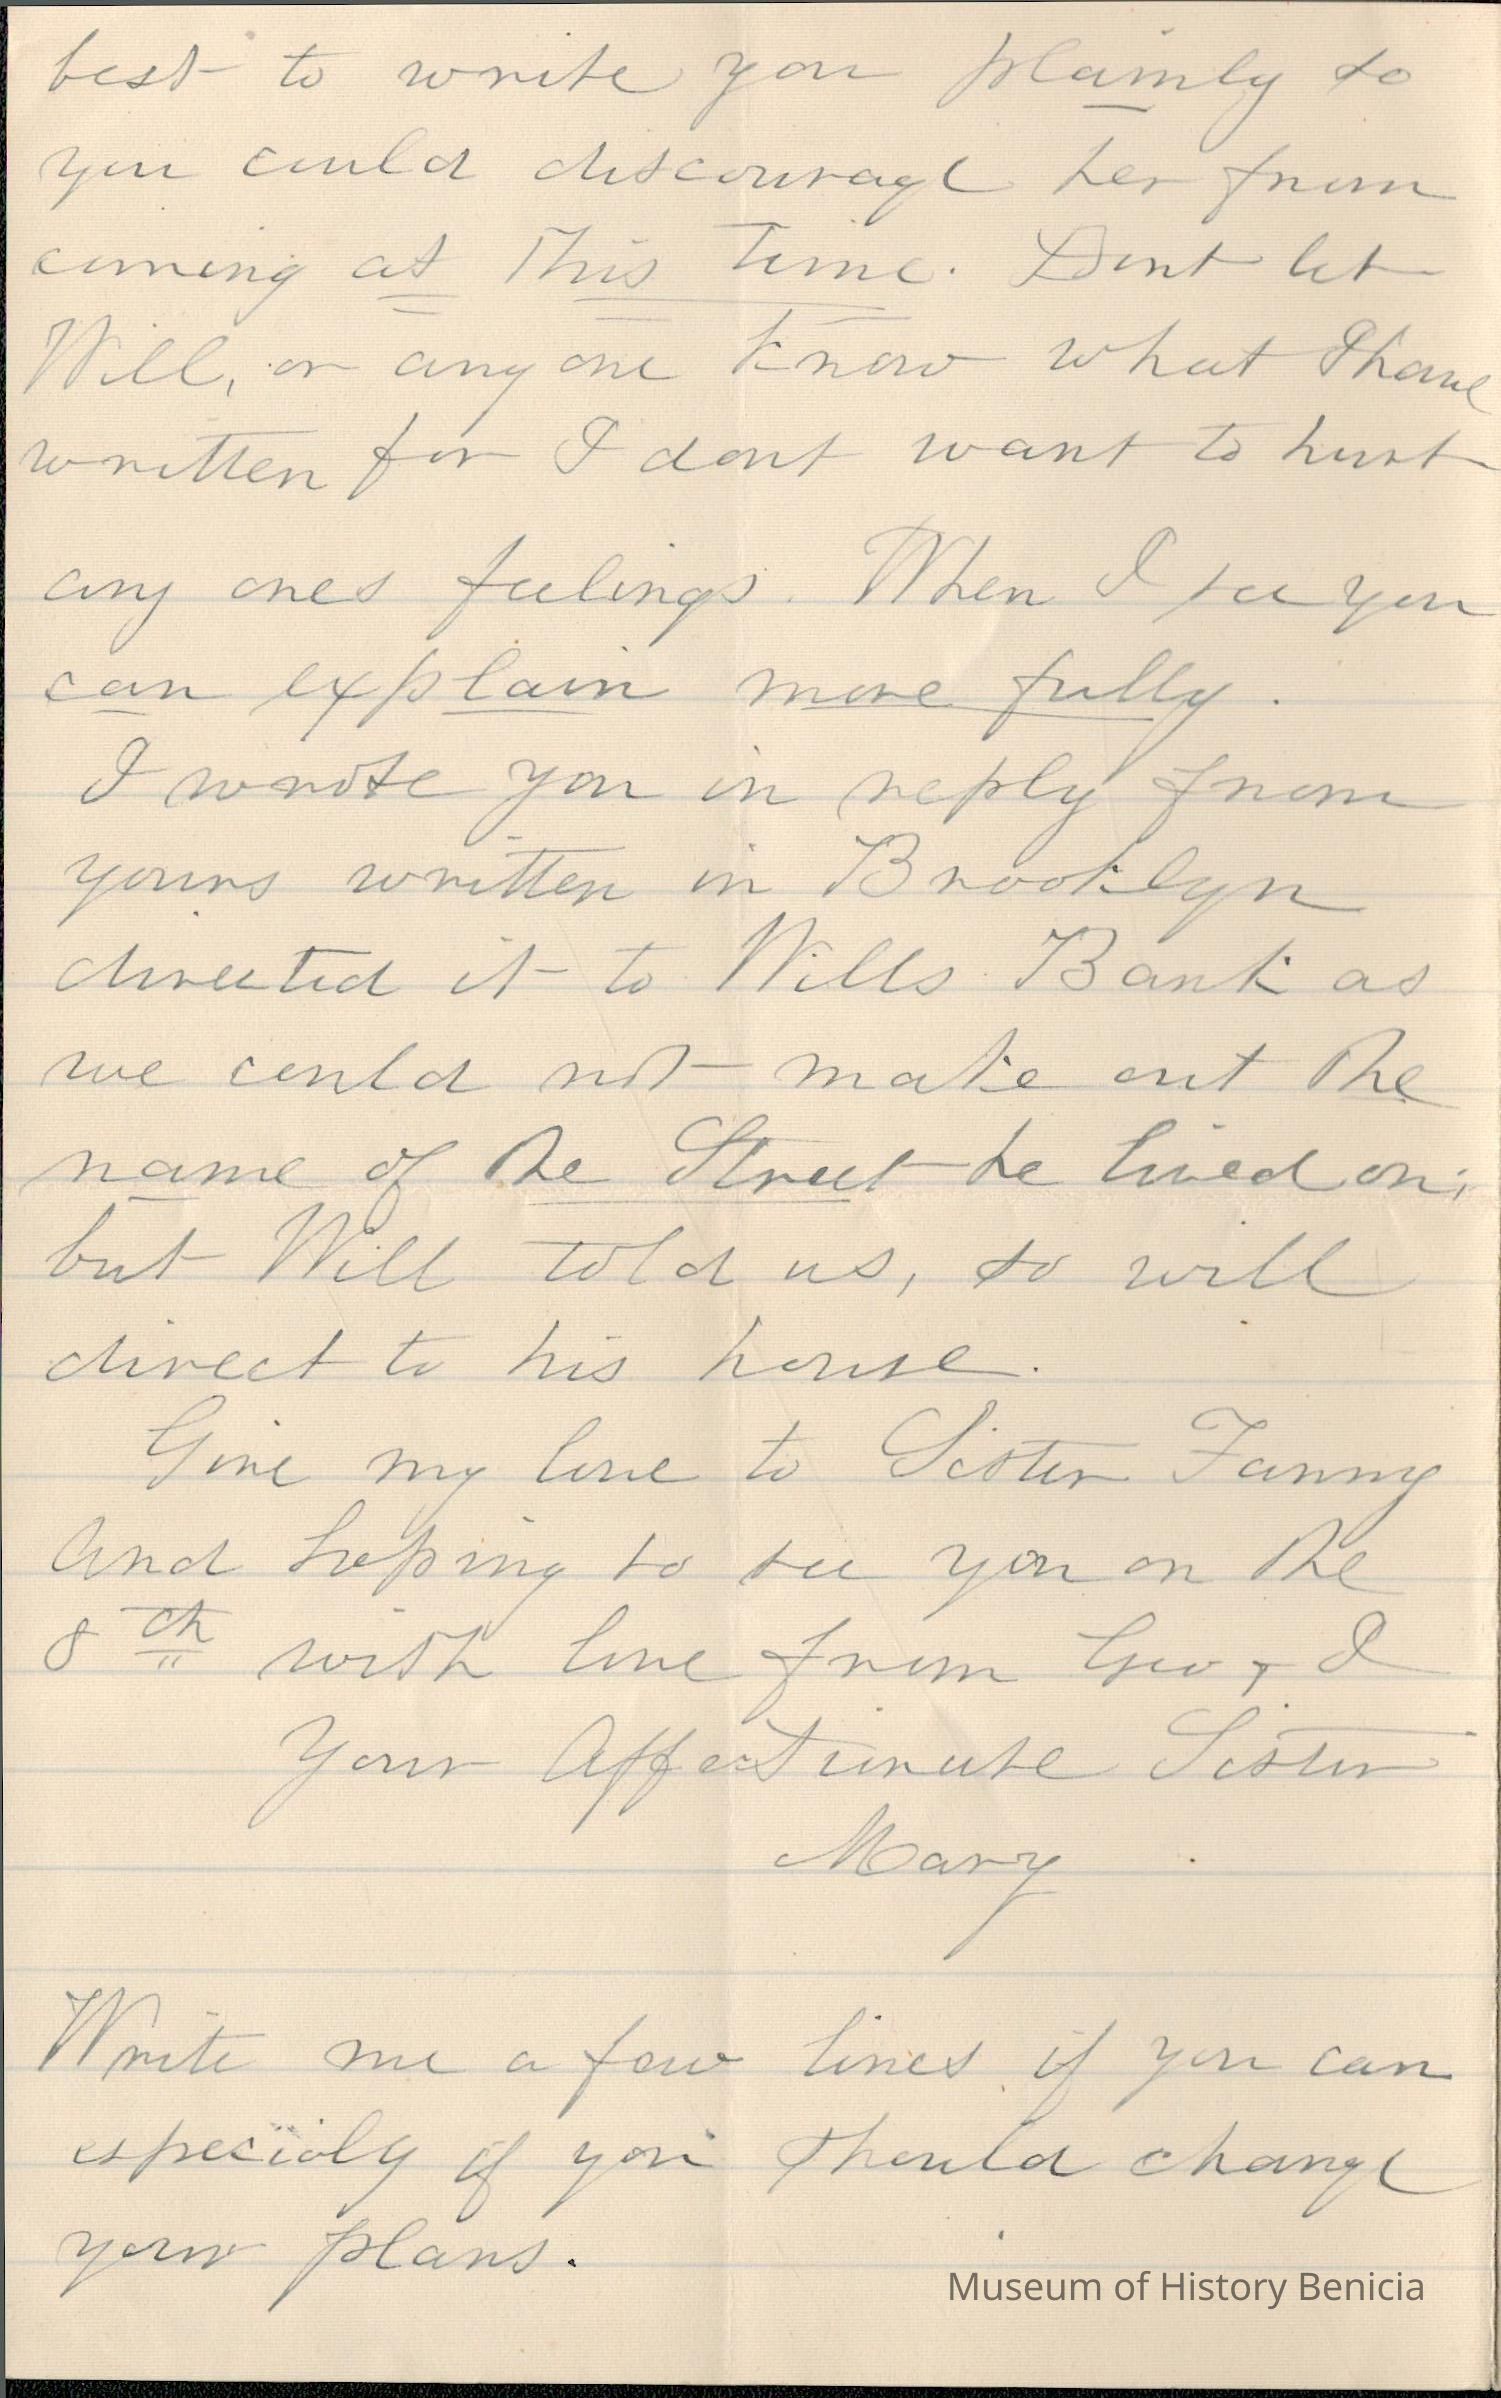 best to write you plainly so
you could discourage her from
coming at this time. Dont let
Will, or any one know what I have
written for I dont want to hurt
any ones feelings. When I see you
can explain more fully.
I wrote you in reply from
yours written in Brooklyn
directed it to Wills Bank as
we could not make out the
name of the Street he lived on,
but Will told us, so will
direct to his house.
Give my love to Sister Fanny
and hoping to see you on the
8th with love from Geo, & I
Your Affectionate Sister
Mary
Write me a few lines if you can
especialy if you should change
your plans.
Museum of History Benicia